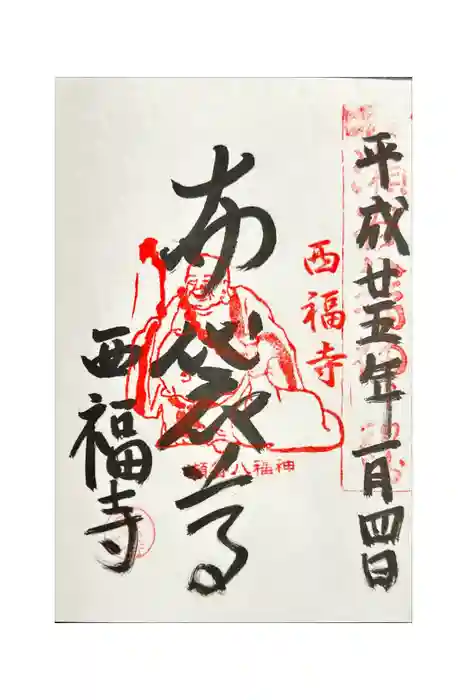 平成廿五年一月四日
西福寺
布袋尊
神福八
西福寺